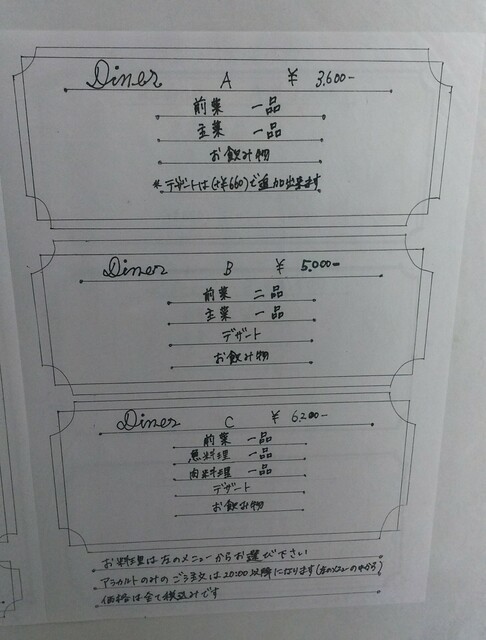 Diner A ¥ 3,600-
前菜 一品
主菜 一品
お飲み物
*デザートは(+¥660)で追加出来ます
Diner B ¥ 5,000-
前菜 二品
主菜 一品
デザート
お飲み物
Diner C ¥ 6,200-
前菜 一品
魚料理 一品
肉料理 一品
デザート
お飲み物
お料理は左のメニューからお選び下さい
アラカルトのみのご注文は20:00以降になります(左のメニューの中から)
価格は全て税込みです